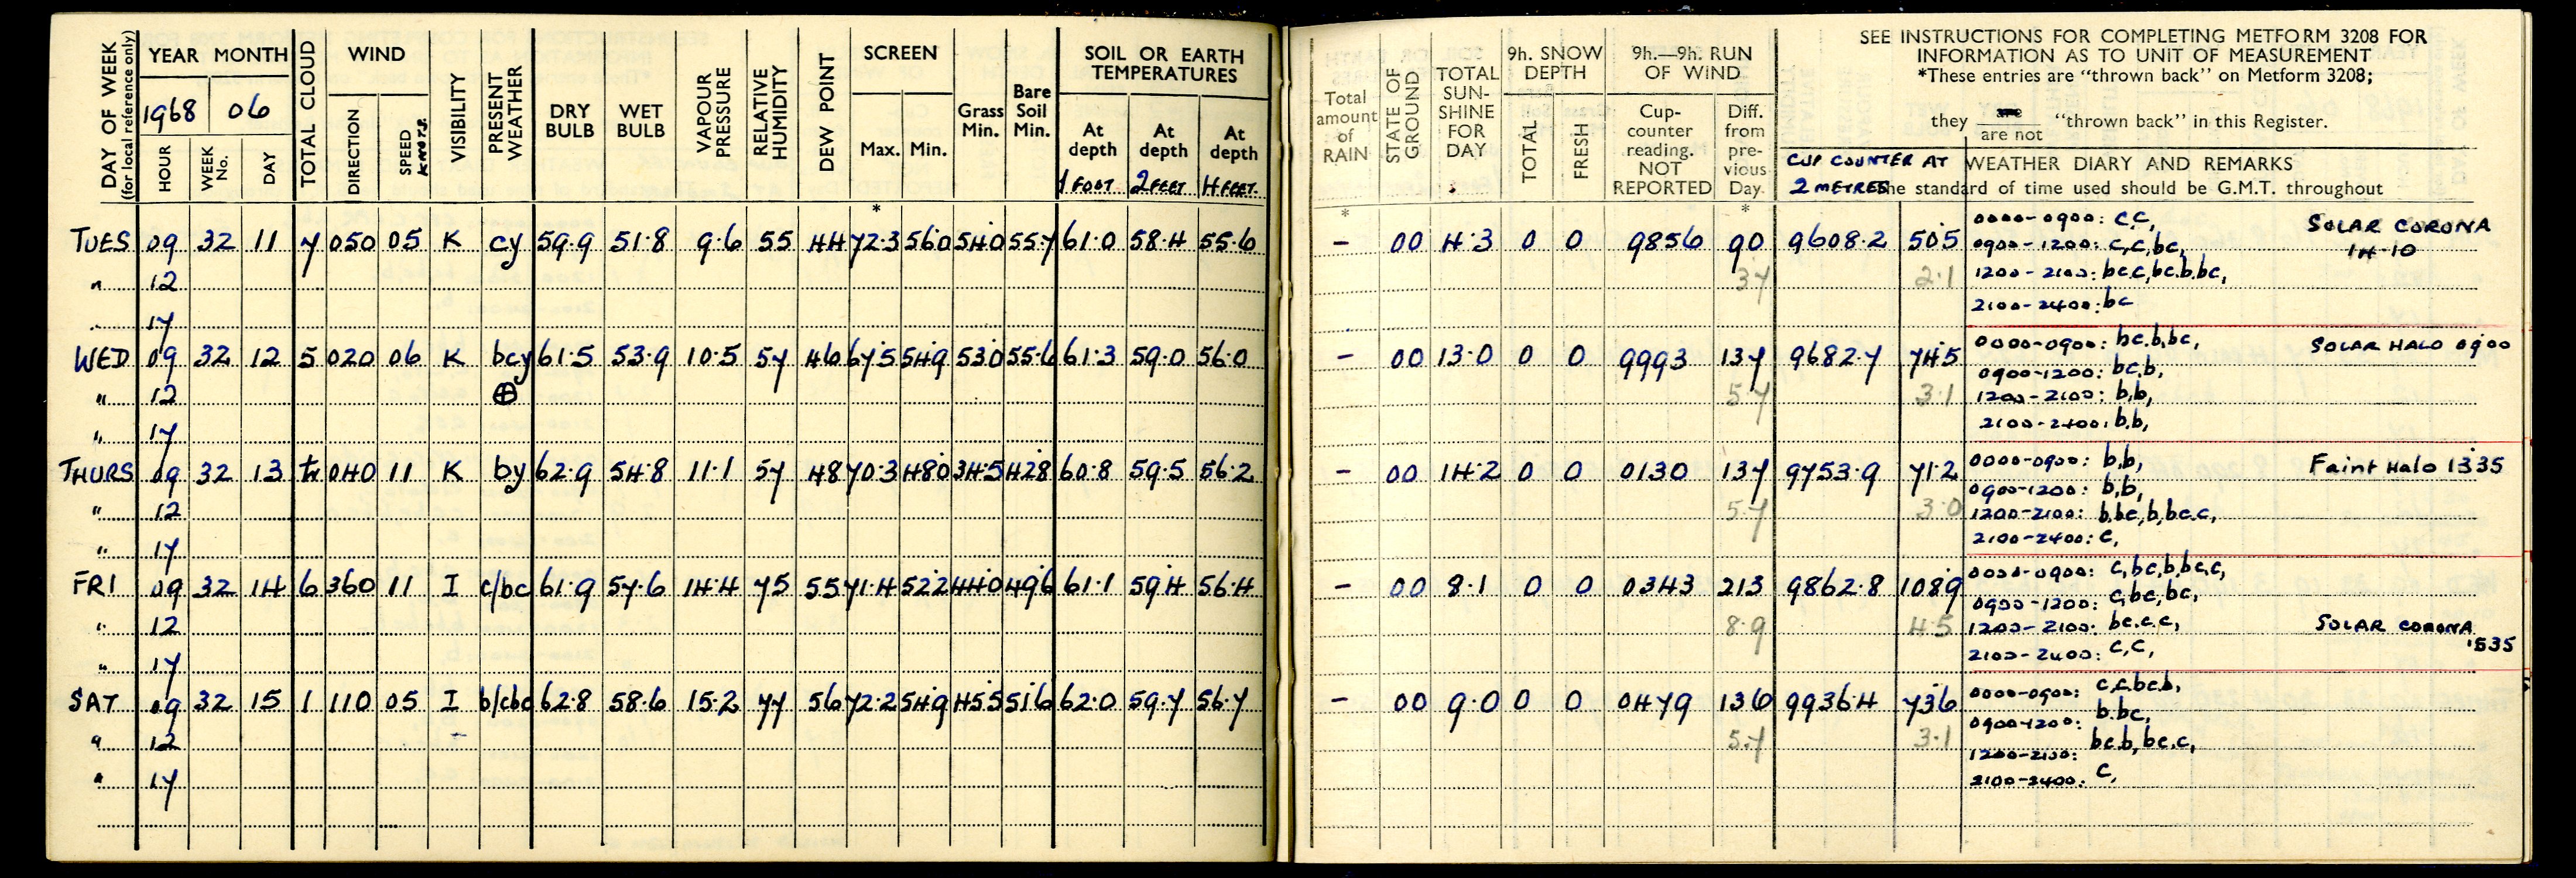 DAY OF WEEK (for local reference only) YEAR MONTH TOTAL CLOUD WIND VISIBILITY PRESENT WEATHER DRY BULB WET BULB VAPOUR PRESSURE RELATIVE HUMIDITY DEW POINT SCREEN Grass Min. Bare Soil Min. SOIL OR EARTH TEMPERATURES
1968 06
HOUR WEEK No. DAY DIRECTION SPEED KNOTS. Max. Min. At depth 1 FOOT At depth 2 FEET At depth 4 FEET.
*
TUES 09 32 11 7 050 05 K cy 59.9 51.8 9.6 55 44 72.3 56.0 54.0 55.7 61.0 58.4 55.6
" 12
" 17
WED 09 32 12 5 020 06 K bcy 61.5 53.9 10.5 57 46 67.5 54.9 53.0 55.6 61.3 59.0 56.0
" 12 ⊕
" 17
THURS 09 32 13 040 11 K by 62.9 54.8 11.1 57 48 70.3 48.0 34.5 42.8 60.8 59.5 56.2
" 12
" 17
FRI 09 32 14 6 360 11 I c/bc 61.9 57.6 14.4 75 55 71.4 52.2 44.0 49.6 61.1 59.4 56.4
" 12
" 17
SAT 09 32 15 1 110 05 I b/cbc 62.8 58.6 15.2 77 56 72.2 54.9 45.5 51.6 62.0 59.7 56.7
" 12
" 17
Total amount of RAIN STATE OF GROUND TOTAL SUN- SHINE FOR DAY 9h. SNOW DEPTH TOTAL FRESH 9h.—9h. RUN OF WIND Cup- counter reading. NOT REPORTED Diff. from pre- vious Day.
SEE INSTRUCTIONS FOR COMPLETING METFORM 3208 FOR
INFORMATION AS TO UNIT OF MEASUREMENT
*These entries are "thrown back" on Metform 3208;
they are / are not "thrown back" in this Register.
CUP COUNTER AT 2 METRES
WEATHER DIARY AND REMARKS
he standard of time used should be G.M.T. throughout
* *
– 00 4.3 0 0 9856 90 9608.2 50.5 0000-0900: c,c, SOLAR CORONA
0900-1200: c,c,bc, 14.10
37 2.1 1200-2100: bc.c,bc.b.bc,
2100-2400: bc
– 00 13.0 0 0 9993 137 9682.7 74.5 0000-0900: bc.b,bc, SOLAR HALO 0900
0900-1200: bc.b,
5.7 3.1 1200-2100: b,b,
2100-2400: b,b,
– 00 14.2 0 0 0130 137 9753.9 71.2 0000-0900: b,b, Faint Halo 1335
0900-1200: b,b,
5.7 3.0 1200-2100: b,bc,b,bc.c,
2100-2400: c,
– 00 8.1 0 0 0343 213 9862.8 108.9 0000-0900: c,bc,b,bc,c,
0900-1200: c,bc,bc,
8.9 4.5 1200-2100: bc.c.c, SOLAR CORONA
2100-2400: c,c, 1535
– 00 9.0 0 0 0479 136 9936.4 73.6 0000-0900: c,c,bc,b,
0900-1200: b.bc,
5.7 3.1 1200-2100: bc.b,bc.c,
2100-2400: c,